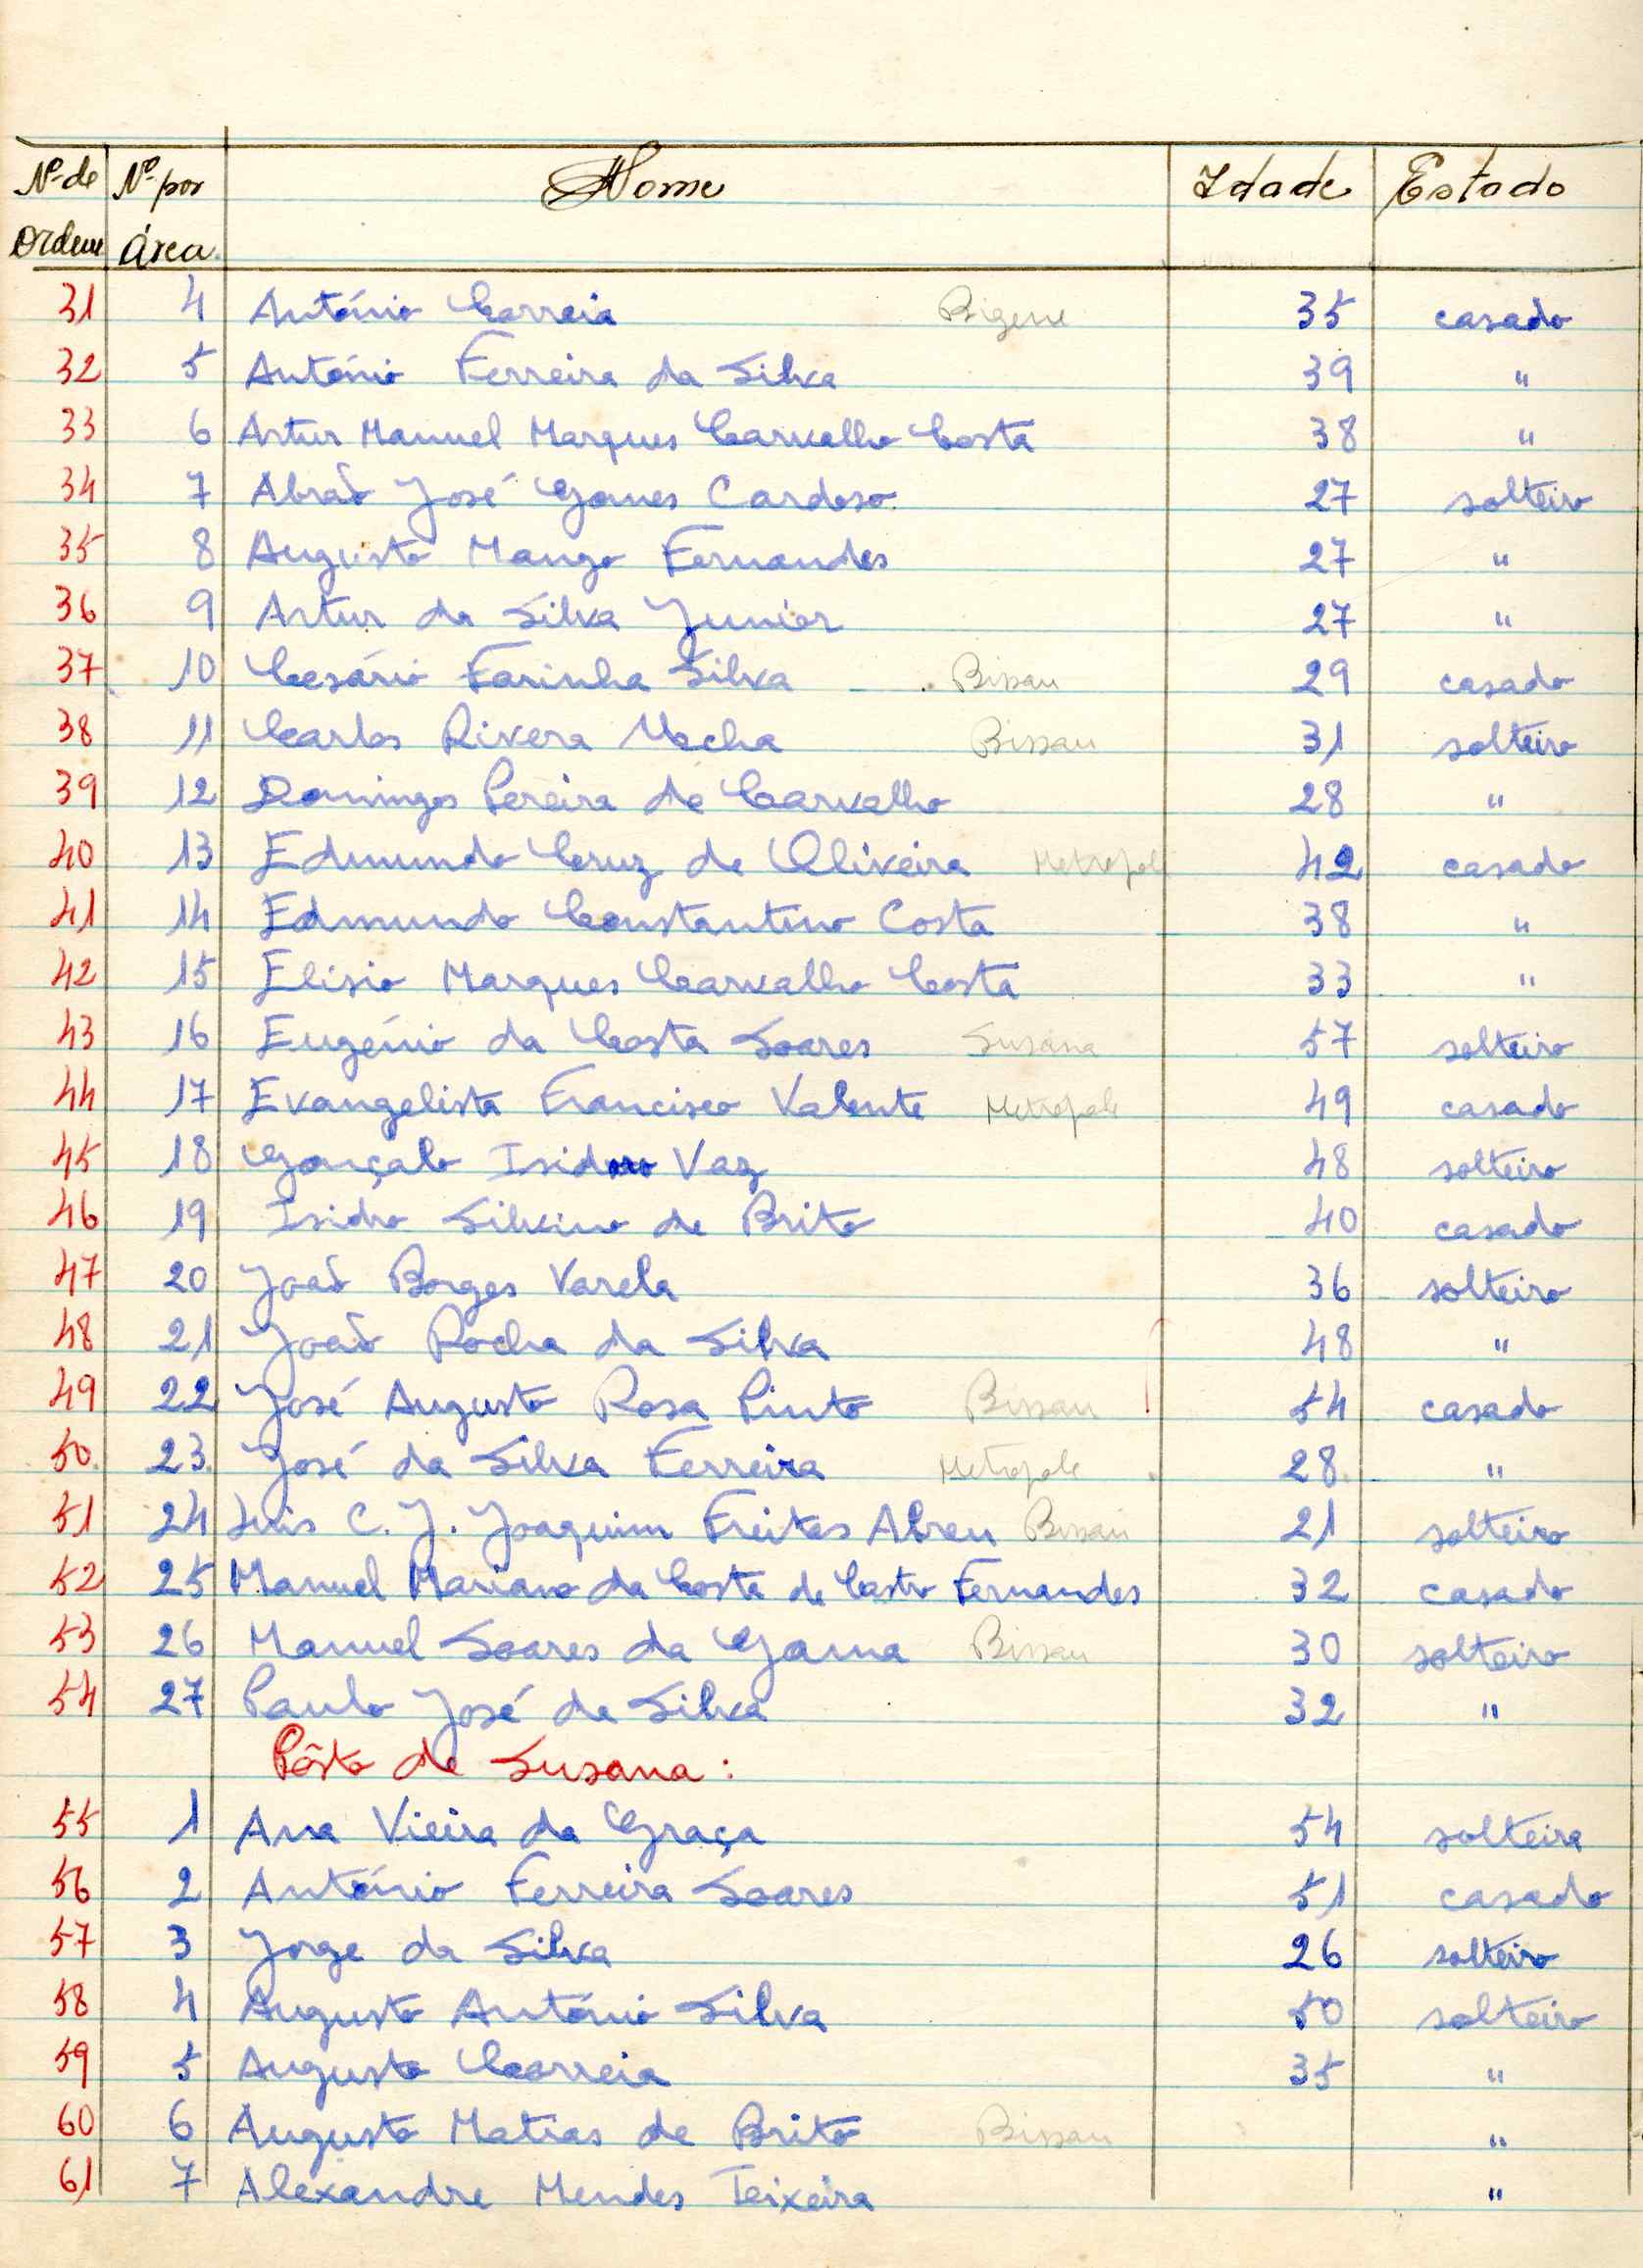 Nº de Ordem Nº por Área Nome Idade Estado
31 4 António Correia Bigene 35 casado
32 5 António Ferreira da Silva 39 "
33 6 Artur Manuel Marques Carvalho Costa 38 "
34 7 Abraão José Gomes Cardoso 27 solteiro
35 8 Augusto Mango Fernandes 27 "
36 9 Artur da Silva Junior 27 "
37 10 Cesário Farinha Silva Bissau 29 casado
38 11 Carlos Rivera Bissau 31 solteiro
39 12 Domingos Pereira de Carvalho 28 "
40 13 Edmundo Cruz de Oliveira Metropole 42 casado
41 14 Edmundo Constantino Costa 38 "
42 15 Elisio Marques Carvalho Costa 33 "
43 16 Eugénio da Costa Soares Susana 57 solteiro
44 17 Evangelista Francisco Valente Metropole 49 casado
45 18 Gonçalo Isidoro Vaz 48 solteiro
46 19 Isidro Silvino de Brito 40 casado
47 20 João Borges Varela 36 solteiro
48 21 João Rocha da Silva 48 "
49 22 José Augusto Rosa Pinto Bissau 54 casado
50 23 José da Silva Ferreira Metropole 28 "
51 24 Luis C. J. Joaquim Freitas Abreu Bissau 21 solteiro
52 25 Manuel Mariano da Costa de Castro Fernandes 32 casado
53 26 Manuel Soares da Gama Bissau 30 solteiro
54 27 Paulo José da Silva 32 "
Pôsto de Susana:
55 1 Ana Vieira da Graça 54 solteira
56 2 António Ferreira Soares 51 casado
57 3 Jorge da Silva 26 solteiro
58 4 Augusto António Silva 50 solteiro
59 5 Augusto Correia 35 "
60 6 Augusto Matias de Brito Bissau "
61 7 Alexandre Mendes Teixeira "